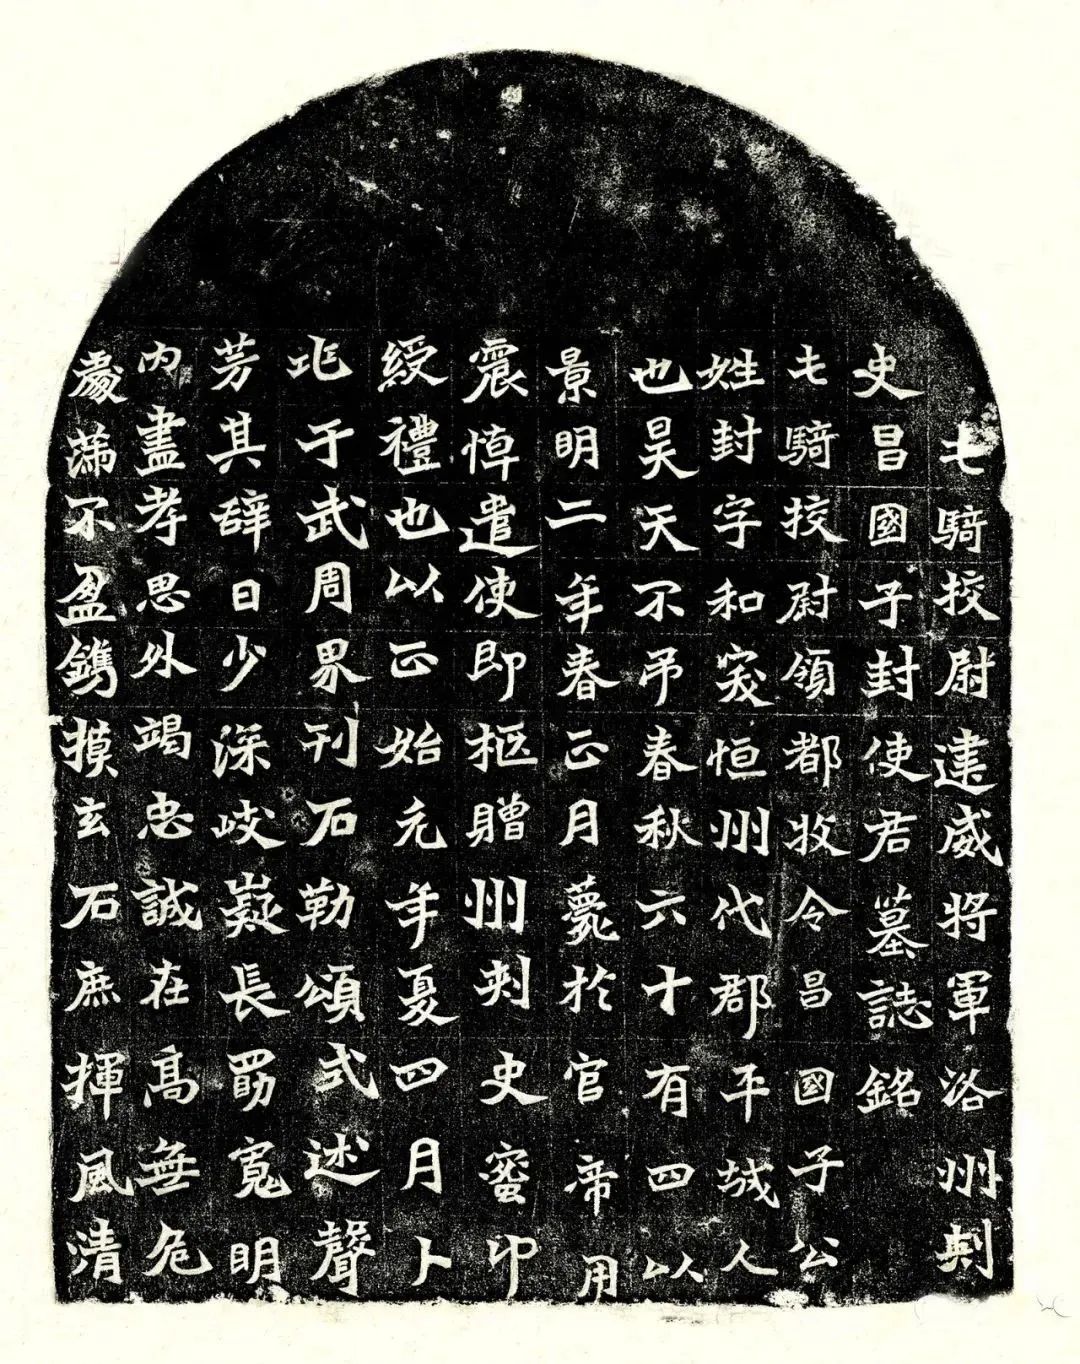 屯騎挍尉建威將軍洛州刾
史昌國子封使君墓誌銘
屯騎挍尉領都牧令昌國子公
姓封字和突恒州代郡平城人
也昊天不弔春秋六十有四以
景明二年春正月薨於官帝用
震悼遣使即柩贈州刾史蜜印
綬禮也以正始元年夏四月卜
兆于武周界刊石勒頌式述聲
芳其辞曰少深岐嶷長勗寬明
内盡孝思外竭忠誠在髙無危
處滿不盈鐫摸玄石庶揮風清